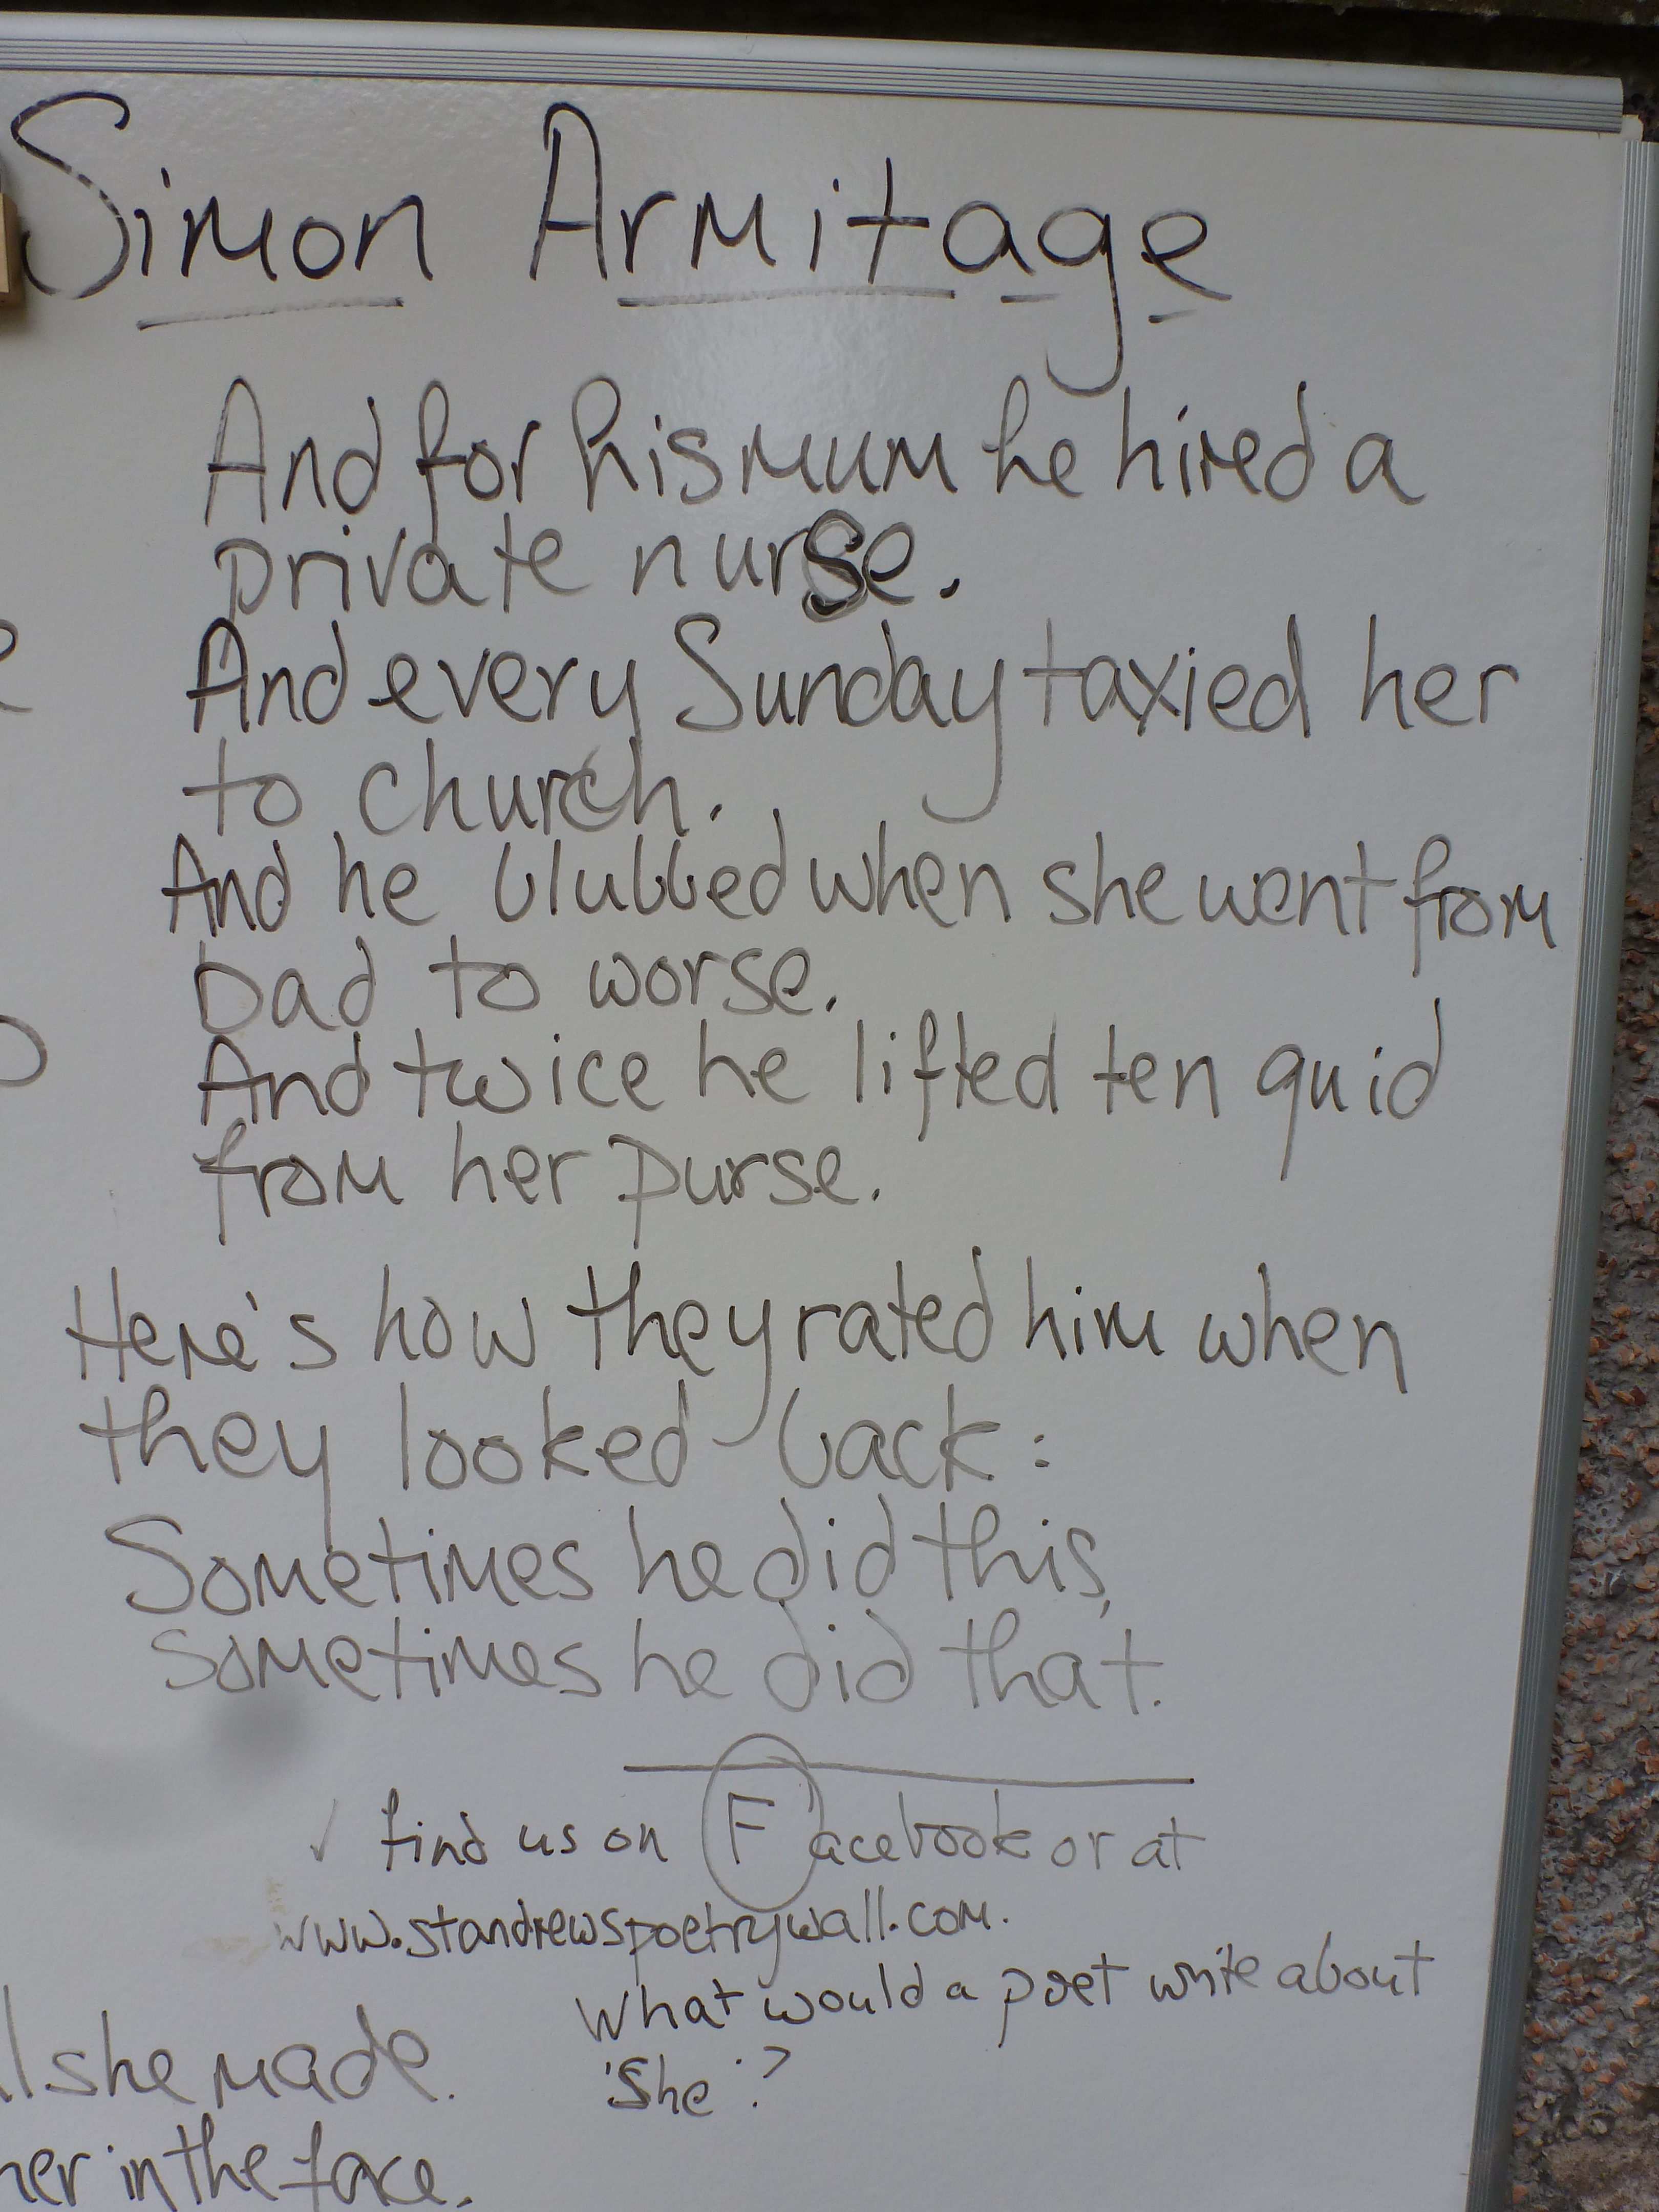 Simon Armitage
And for his mum he hired a
private nurse.
And every Sunday taxied her
to church.
And he blubbed when she went from
bad to worse.
And twice he lifted ten quid
from her purse.
Here's how they rated him when
they looked back:
Sometimes he did this,
sometimes he did that.
find us on Facebook or at
www.standrewspoetrywall.com.
What would a poet write about
'She'?
she made.
her in the face.